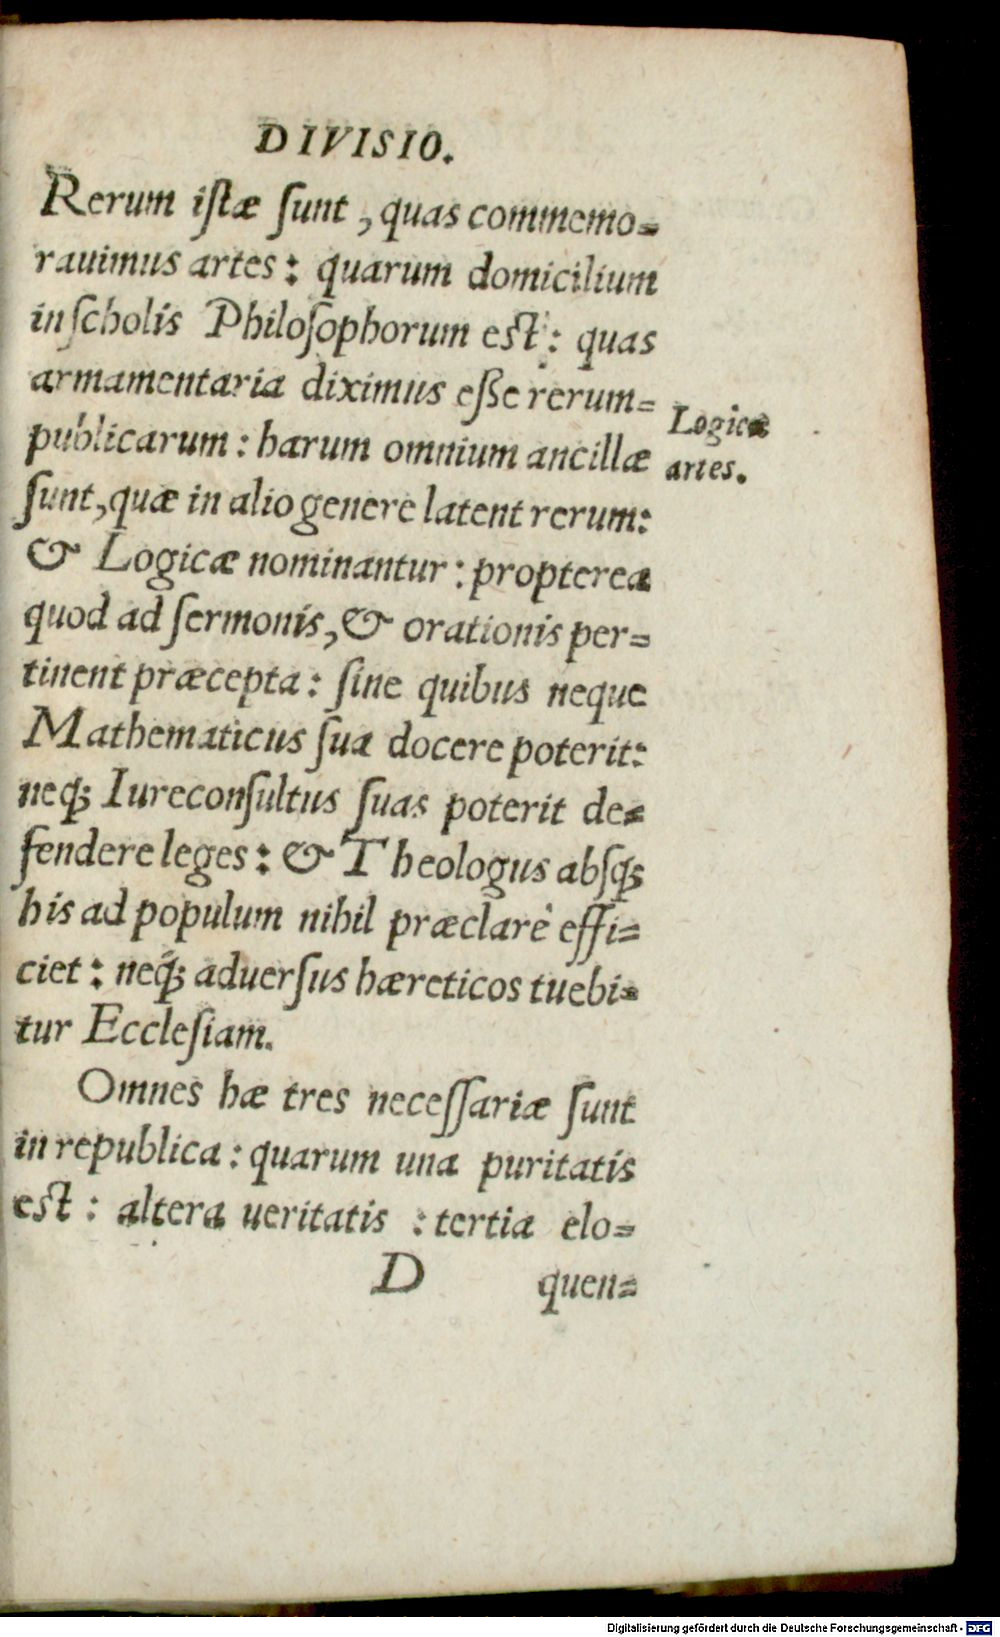 DIVISIO.
Rerum istæ sunt, quas commemo=
rauimus artes: quarum domicilium
in scholis Philosophorum est: quas
armamentaria diximus eße rerum=
publicarum: harum omnium ancillæ
sunt, quæ in alio genere latent rerum:
& Logicæ nominantur: propterea
quod ad sermonis, & orationis per=
tinent præcepta: sine quibus neque
Mathematicus sua docere poterit:
neq; Iureconsultus suas poterit de=
fendere leges: & Theologus absq;
his ad populum nihil præclarè effi=
ciet: neq; aduersus hæreticos tuebi=
tur Ecclesiam.
Omnes hæ tres necessariæ sunt
in republica: quarum una puritatis
est: altera ueritatis: tertia elo=
D quen=
Logicæ
artes.
Digitalisierung gefördert durch die Deutsche Forschungsgemeinschaft - DFG